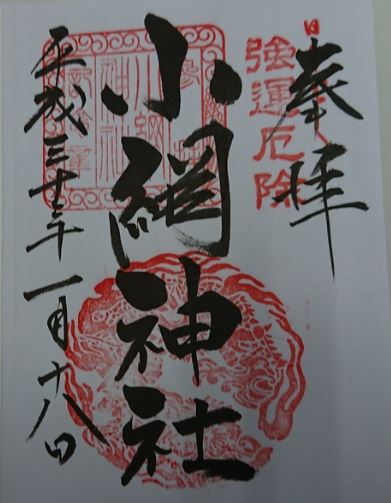 奉拝
強運厄除
小網神社
平成三十年一月十八日